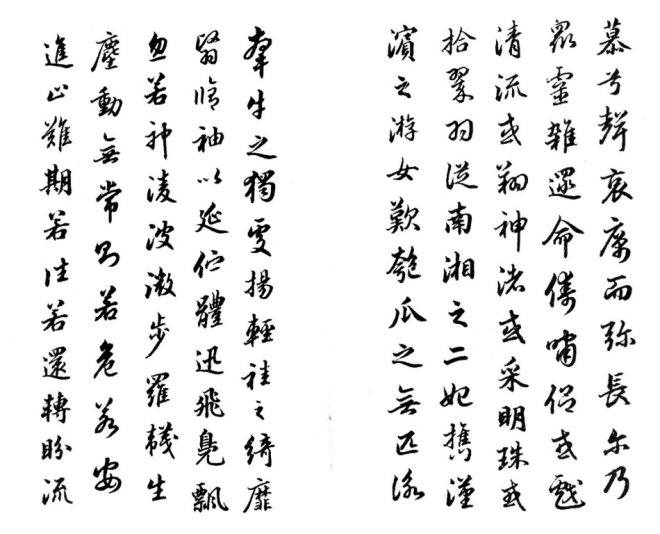 慕兮聲哀厲而弥長尔乃
眾靈雜遝命儔嘯侣或戲
清流或翔神渚或采明珠或
拾翠羽從南湘之二妃携漢
濱之游女歎匏瓜之無匹詠
牽牛之獨處揚輕袿之綺靡
翳脩袖以延佇體迅飛鳧飄
忽若神凌波微步羅韈生
塵動無常則若危若安
進止難期若往若還轉盼流